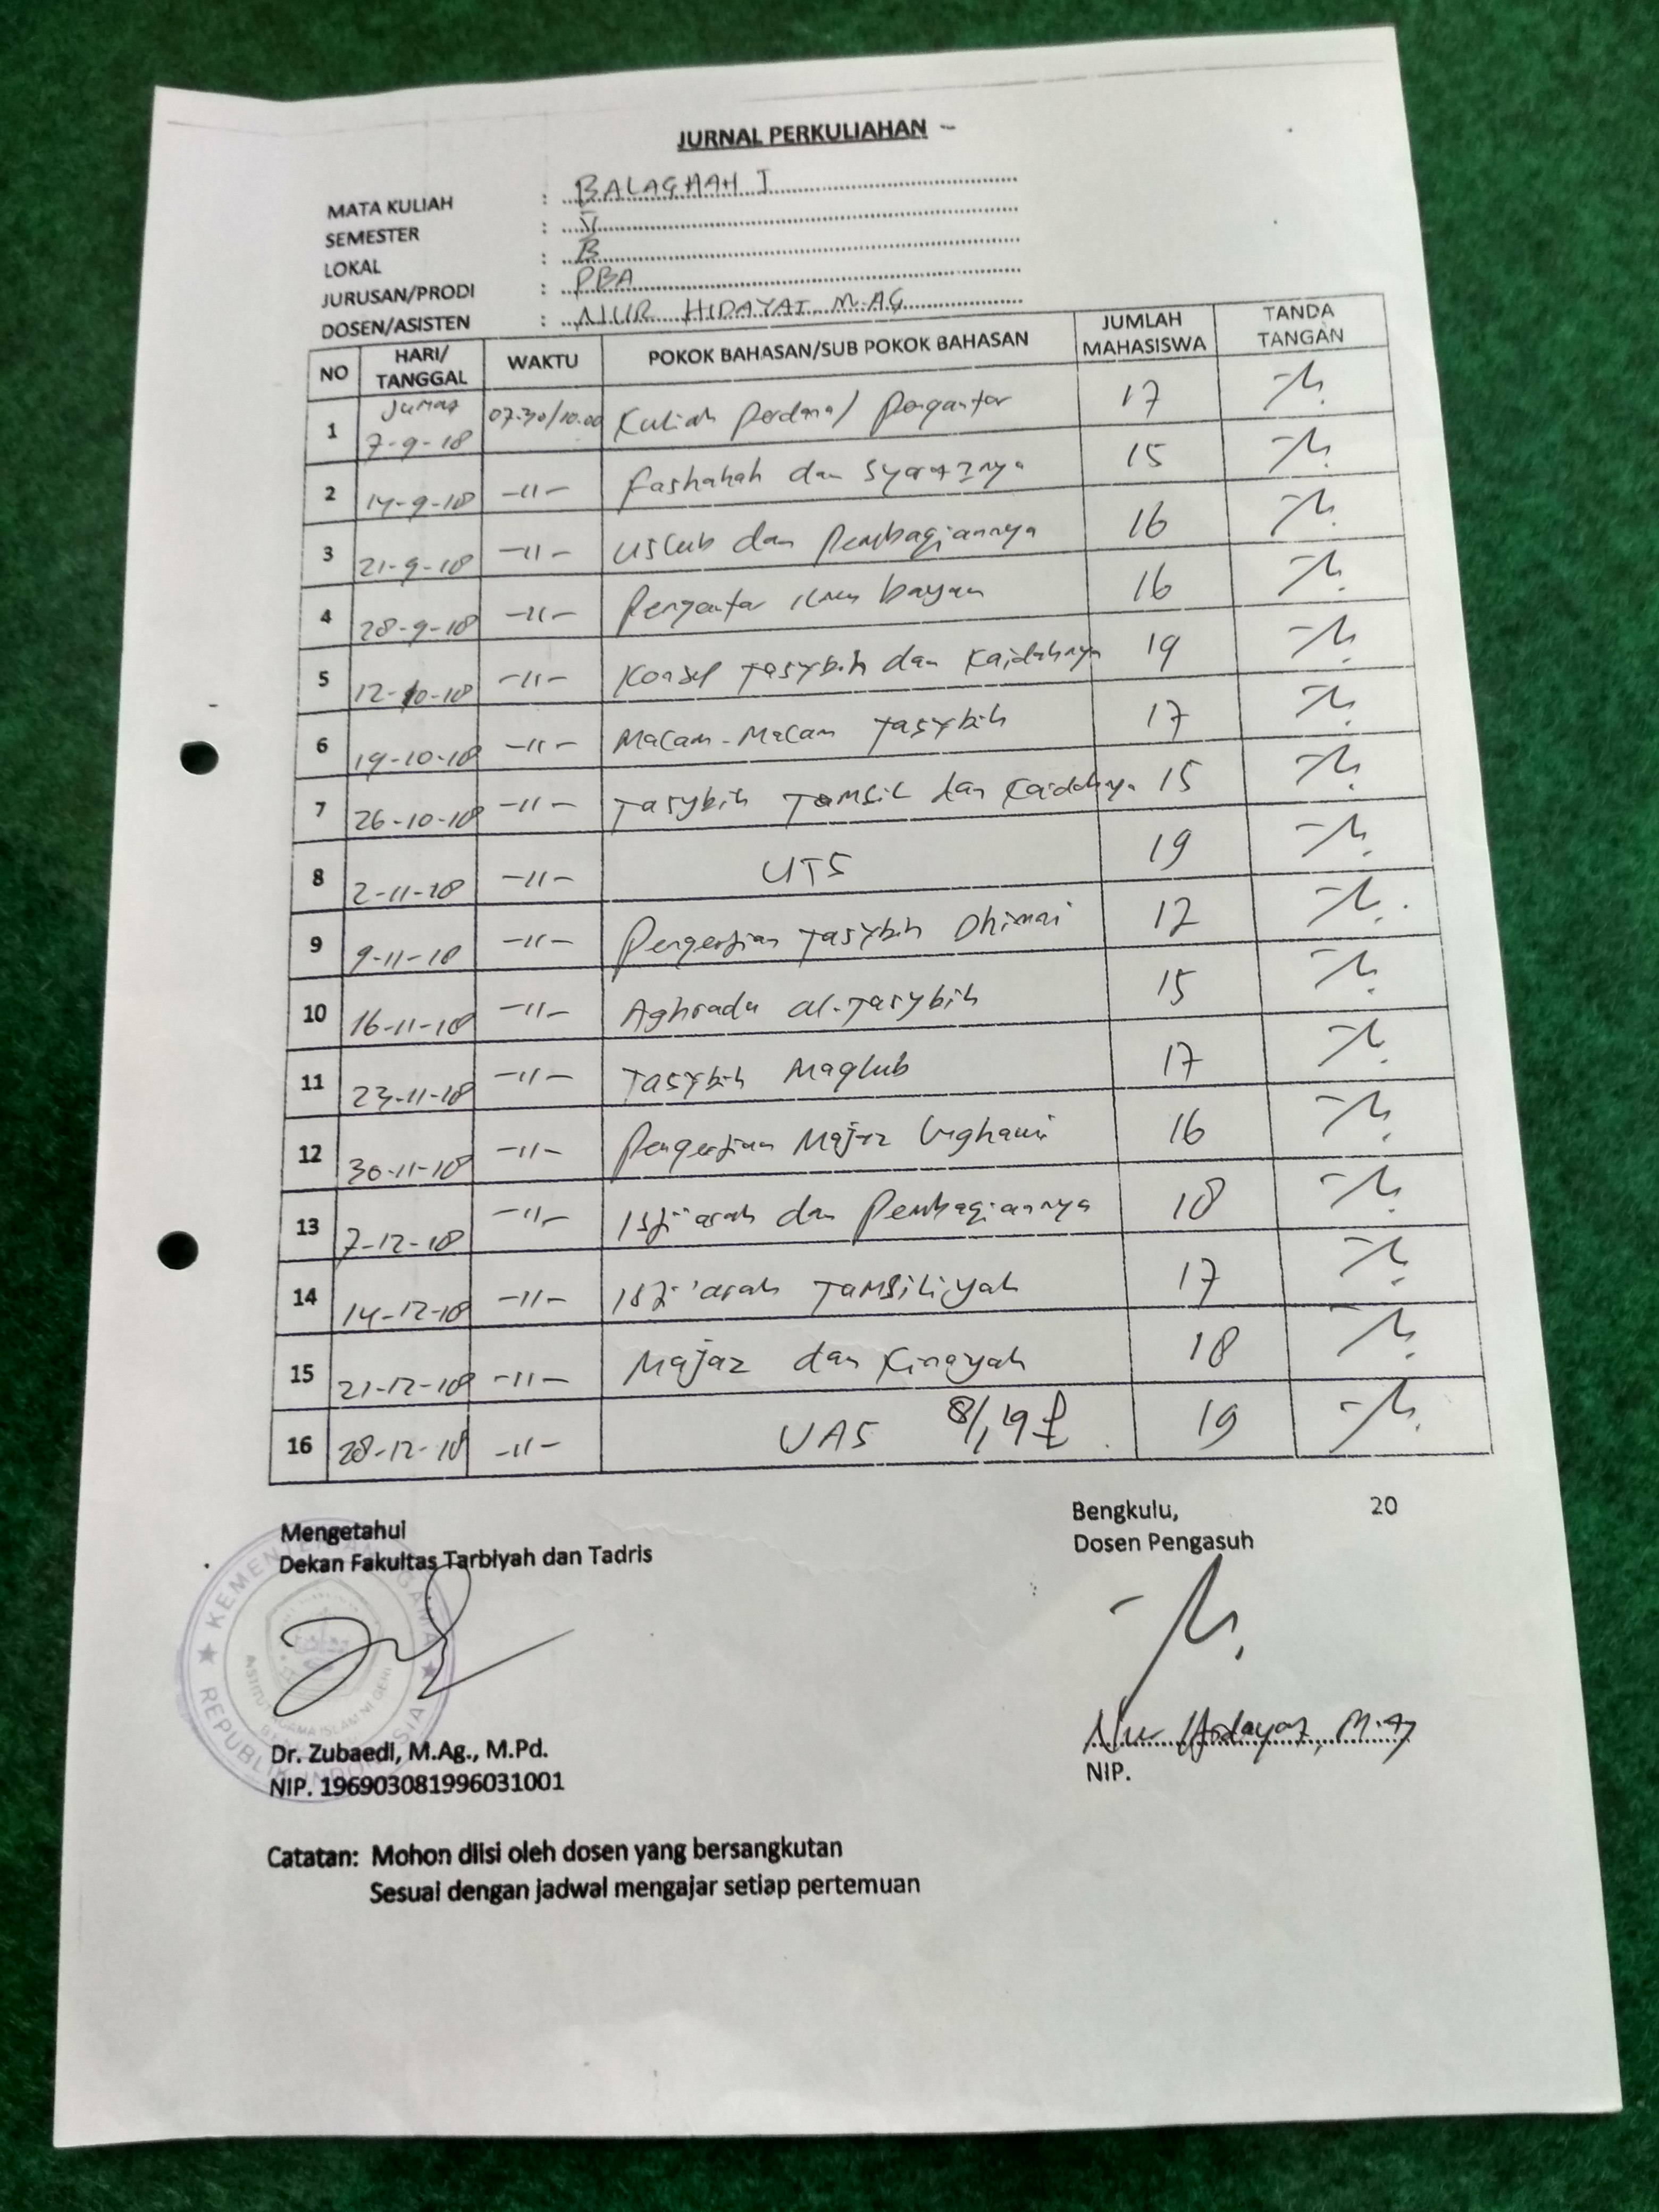 JURNAL PERKULIAHAN -
MATA KULIAH : BALAGHAH I
SEMESTER : V
LOKAL : B
JURUSAN/PRODI : PBA
DOSEN/ASISTEN : NUR HIDAYAT, M.AG
NO HARI/TANGGAL WAKTU POKOK BAHASAN/SUB POKOK BAHASAN JUMLAH MAHASISWA TANDA TANGAN
1 Jumat 7-9-18 07.30/10.00 Kuliah perdana/ pengantar 17
2 14-9-18 -11- Fashahah dan Syarat2nya 15
3 21-9-18 -11- Uslub dan pembagiannya 16
4 28-9-18 -11- Pengantar ilmu bayan 16
5 12-10-18 -11- Konsep Tasybih dan Kaidahnya 19
6 19-10-18 -11- Macam-Macam Tasybih 17
7 26-10-18 -11- Tasybih Tamsil dan Kaidahnya 15
8 2-11-18 -11- UTS 19
9 9-11-18 -11- Pengertian Tasybih Dhimni 17
10 16-11-18 -11- Aghradu al-Tasybih 15
11 23-11-18 -11- Tasybih Maqlub 17
12 30-11-18 -11- Pengertian Majaz Lughawi 16
13 7-12-18 -11- Isti'arah dan Pembagiannya 18
14 14-12-18 -11- Isti'arah Tamsiliyah 17
15 21-12-18 -11- Majaz dan Kinayah 18
16 28-12-18 -11- UAS 8/1 19 19
Mengetahui
Dekan Fakultas Tarbiyah dan Tadris
Bengkulu, 20
Dosen Pengasuh
KEMENTERIAN AGAMA
INSTITUT AGAMA ISLAM NEGERI
REPUBLIK INDONESIA
Dr. Zubaedi, M.Ag., M.Pd.
NIP. 196903081996031001
Nur Hidayat, M.Ag
NIP.
Catatan: Mohon diisi oleh dosen yang bersangkutan
Sesuai dengan jadwal mengajar setiap pertemuan